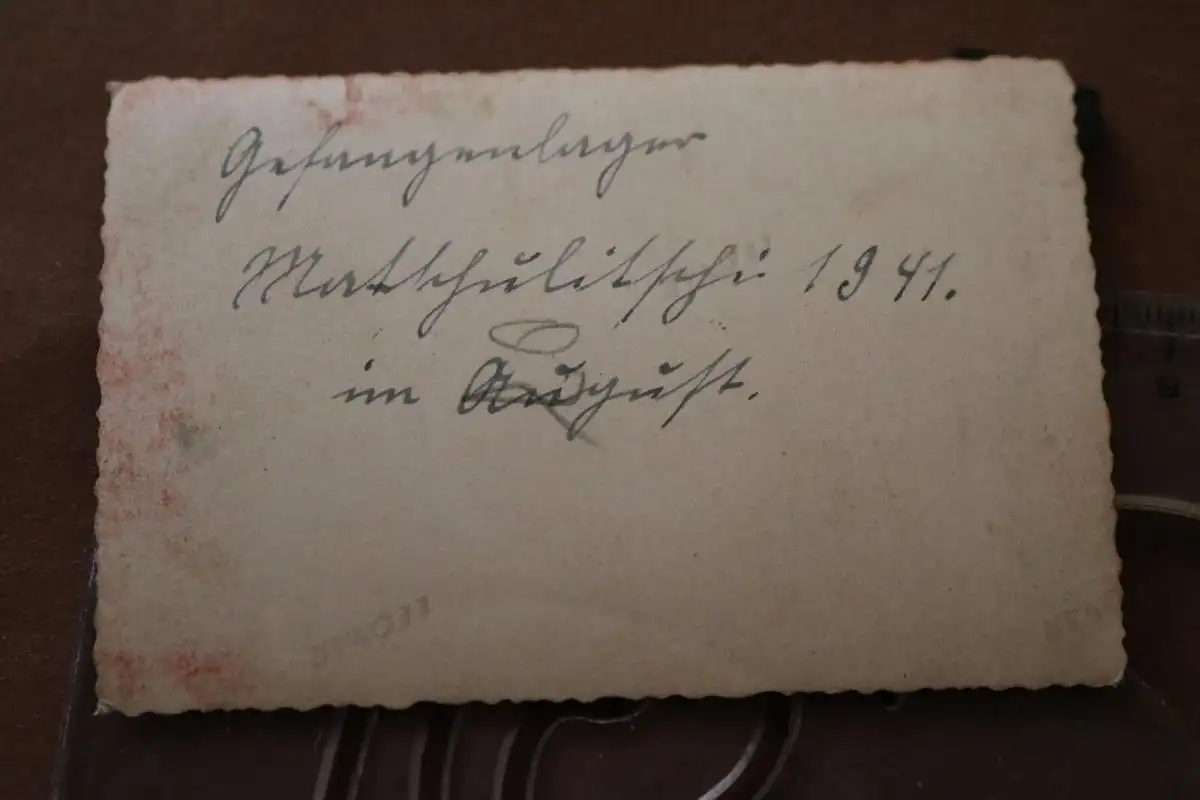 Gefangenlager
Matschulitschi 1941.
im August.